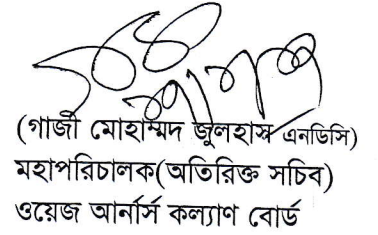 (গাজী মোহাম্মদ জুলহাস এনডিসি)
মহাপরিচালক(অতিরিক্ত সচিব)
ওয়েজ আর্নার্স কল্যাণ বোর্ড